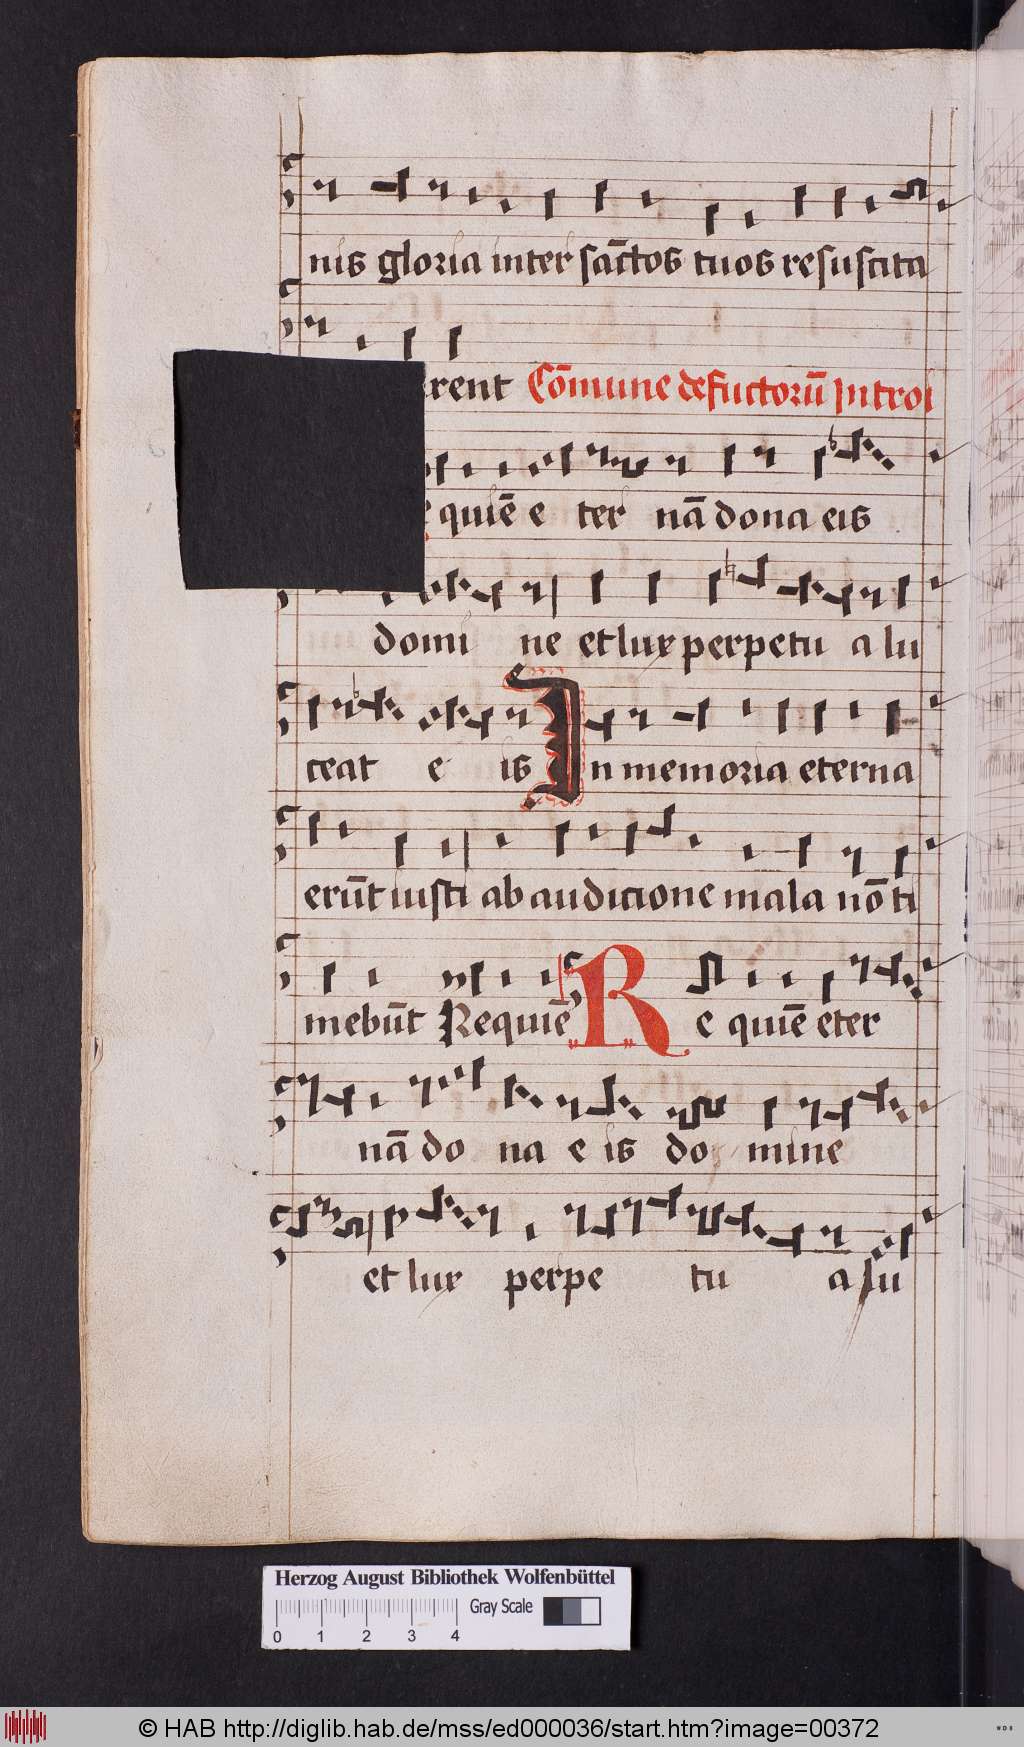 nis gloria inter sāctos tuos resuscita
rent Cōmune defuctorū Introi
quiē e ter nā dona eis
domi ne et lux perpetu a lu
ceat e is In memoria eterna
erūt iusti ab audicione mala nō ti
mebūt Requiē Re quiē eter
nā do na e is do mine
et lux perpe tu a lu
Herzog August Bibliothek Wolfenbüttel
Gray Scale
0 1 2 3 4
© HAB http://diglib.hab.de/mss/ed000036/start.htm?image=00372